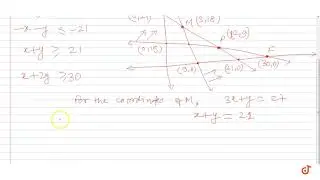 -x-y ≤ -21
x+y ≥ 21
x+2y ≥ 30
M (3,18)
(12,9)
(0,15)
(9,0)
(21,0)
(30,0)
for the coordinates of M, 3x+y = 27
x+y = 21